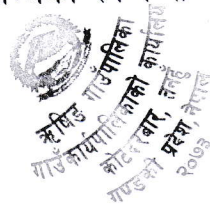 ऋषिङ्ग गाउँपालिका
गाउँकार्यपालिकाको कार्यालय
कोटदरबार, तनहुँ
गण्डकी प्रदेश, नेपाल
२०७३